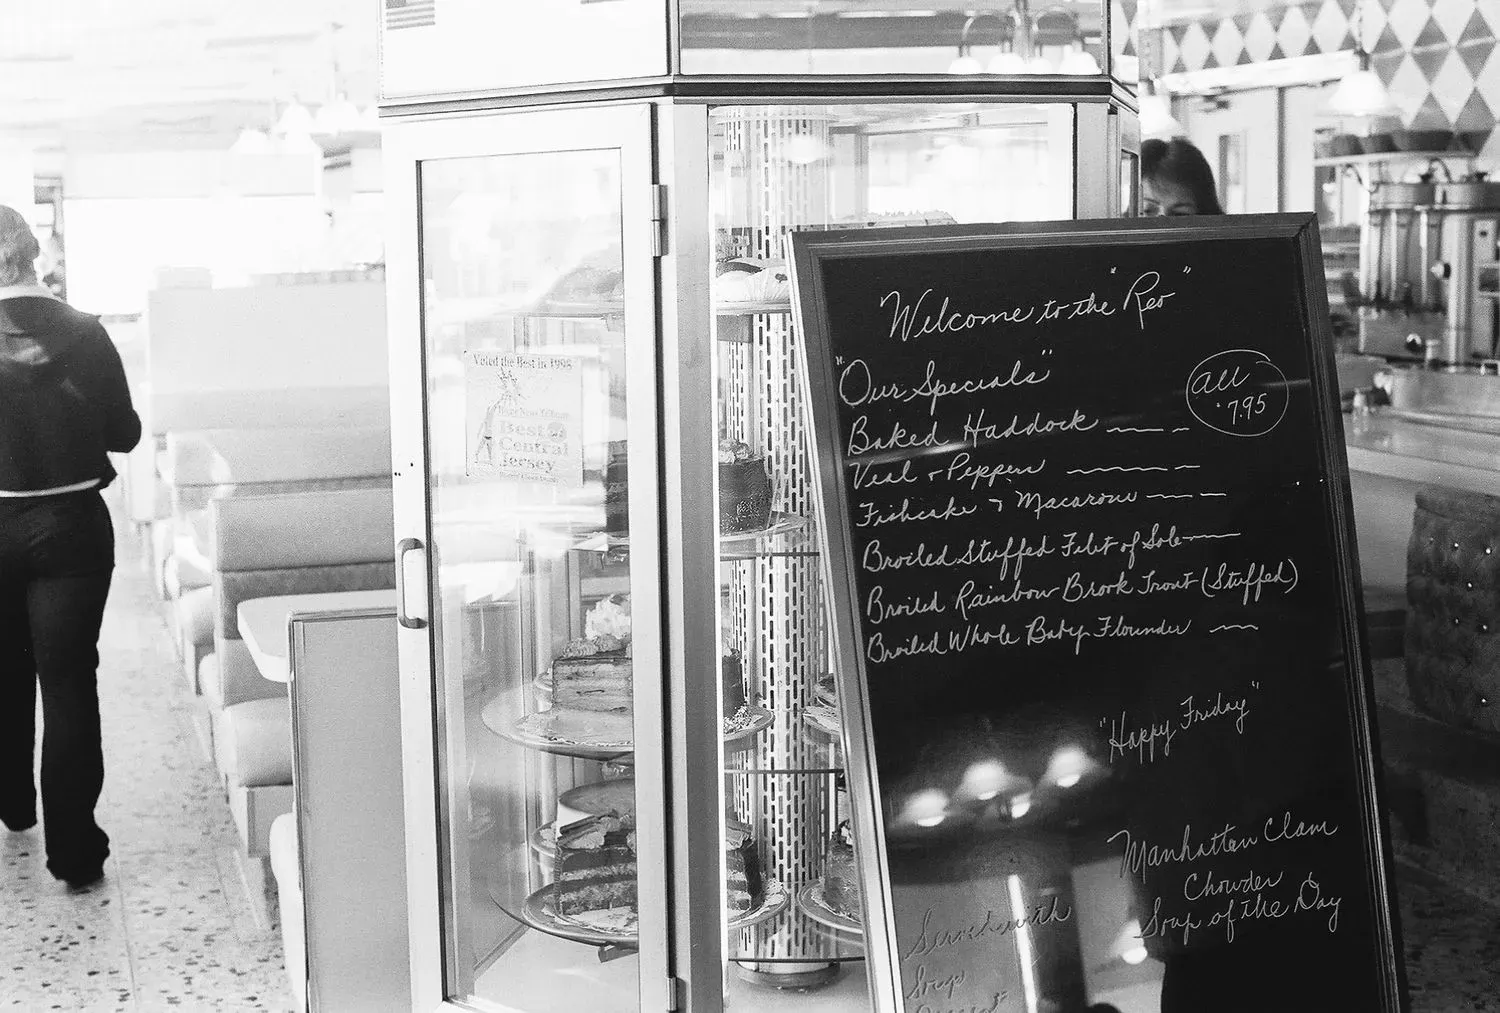 Voted the Best in 1998
Best
Central
Jersey
Welcome to the "Reo"
"Our Specials"
all
7.95
Baked Haddock
Veal + Peppers
Fishcake & Macaroni
Broiled Stuffed Filet of Sole
Broiled Rainbow Brook Trout (Stuffed)
Broiled Whole Baby Flounder
"Happy Friday"
Manhattan Clam
Chowder
Soup of the Day
Served with
Soup